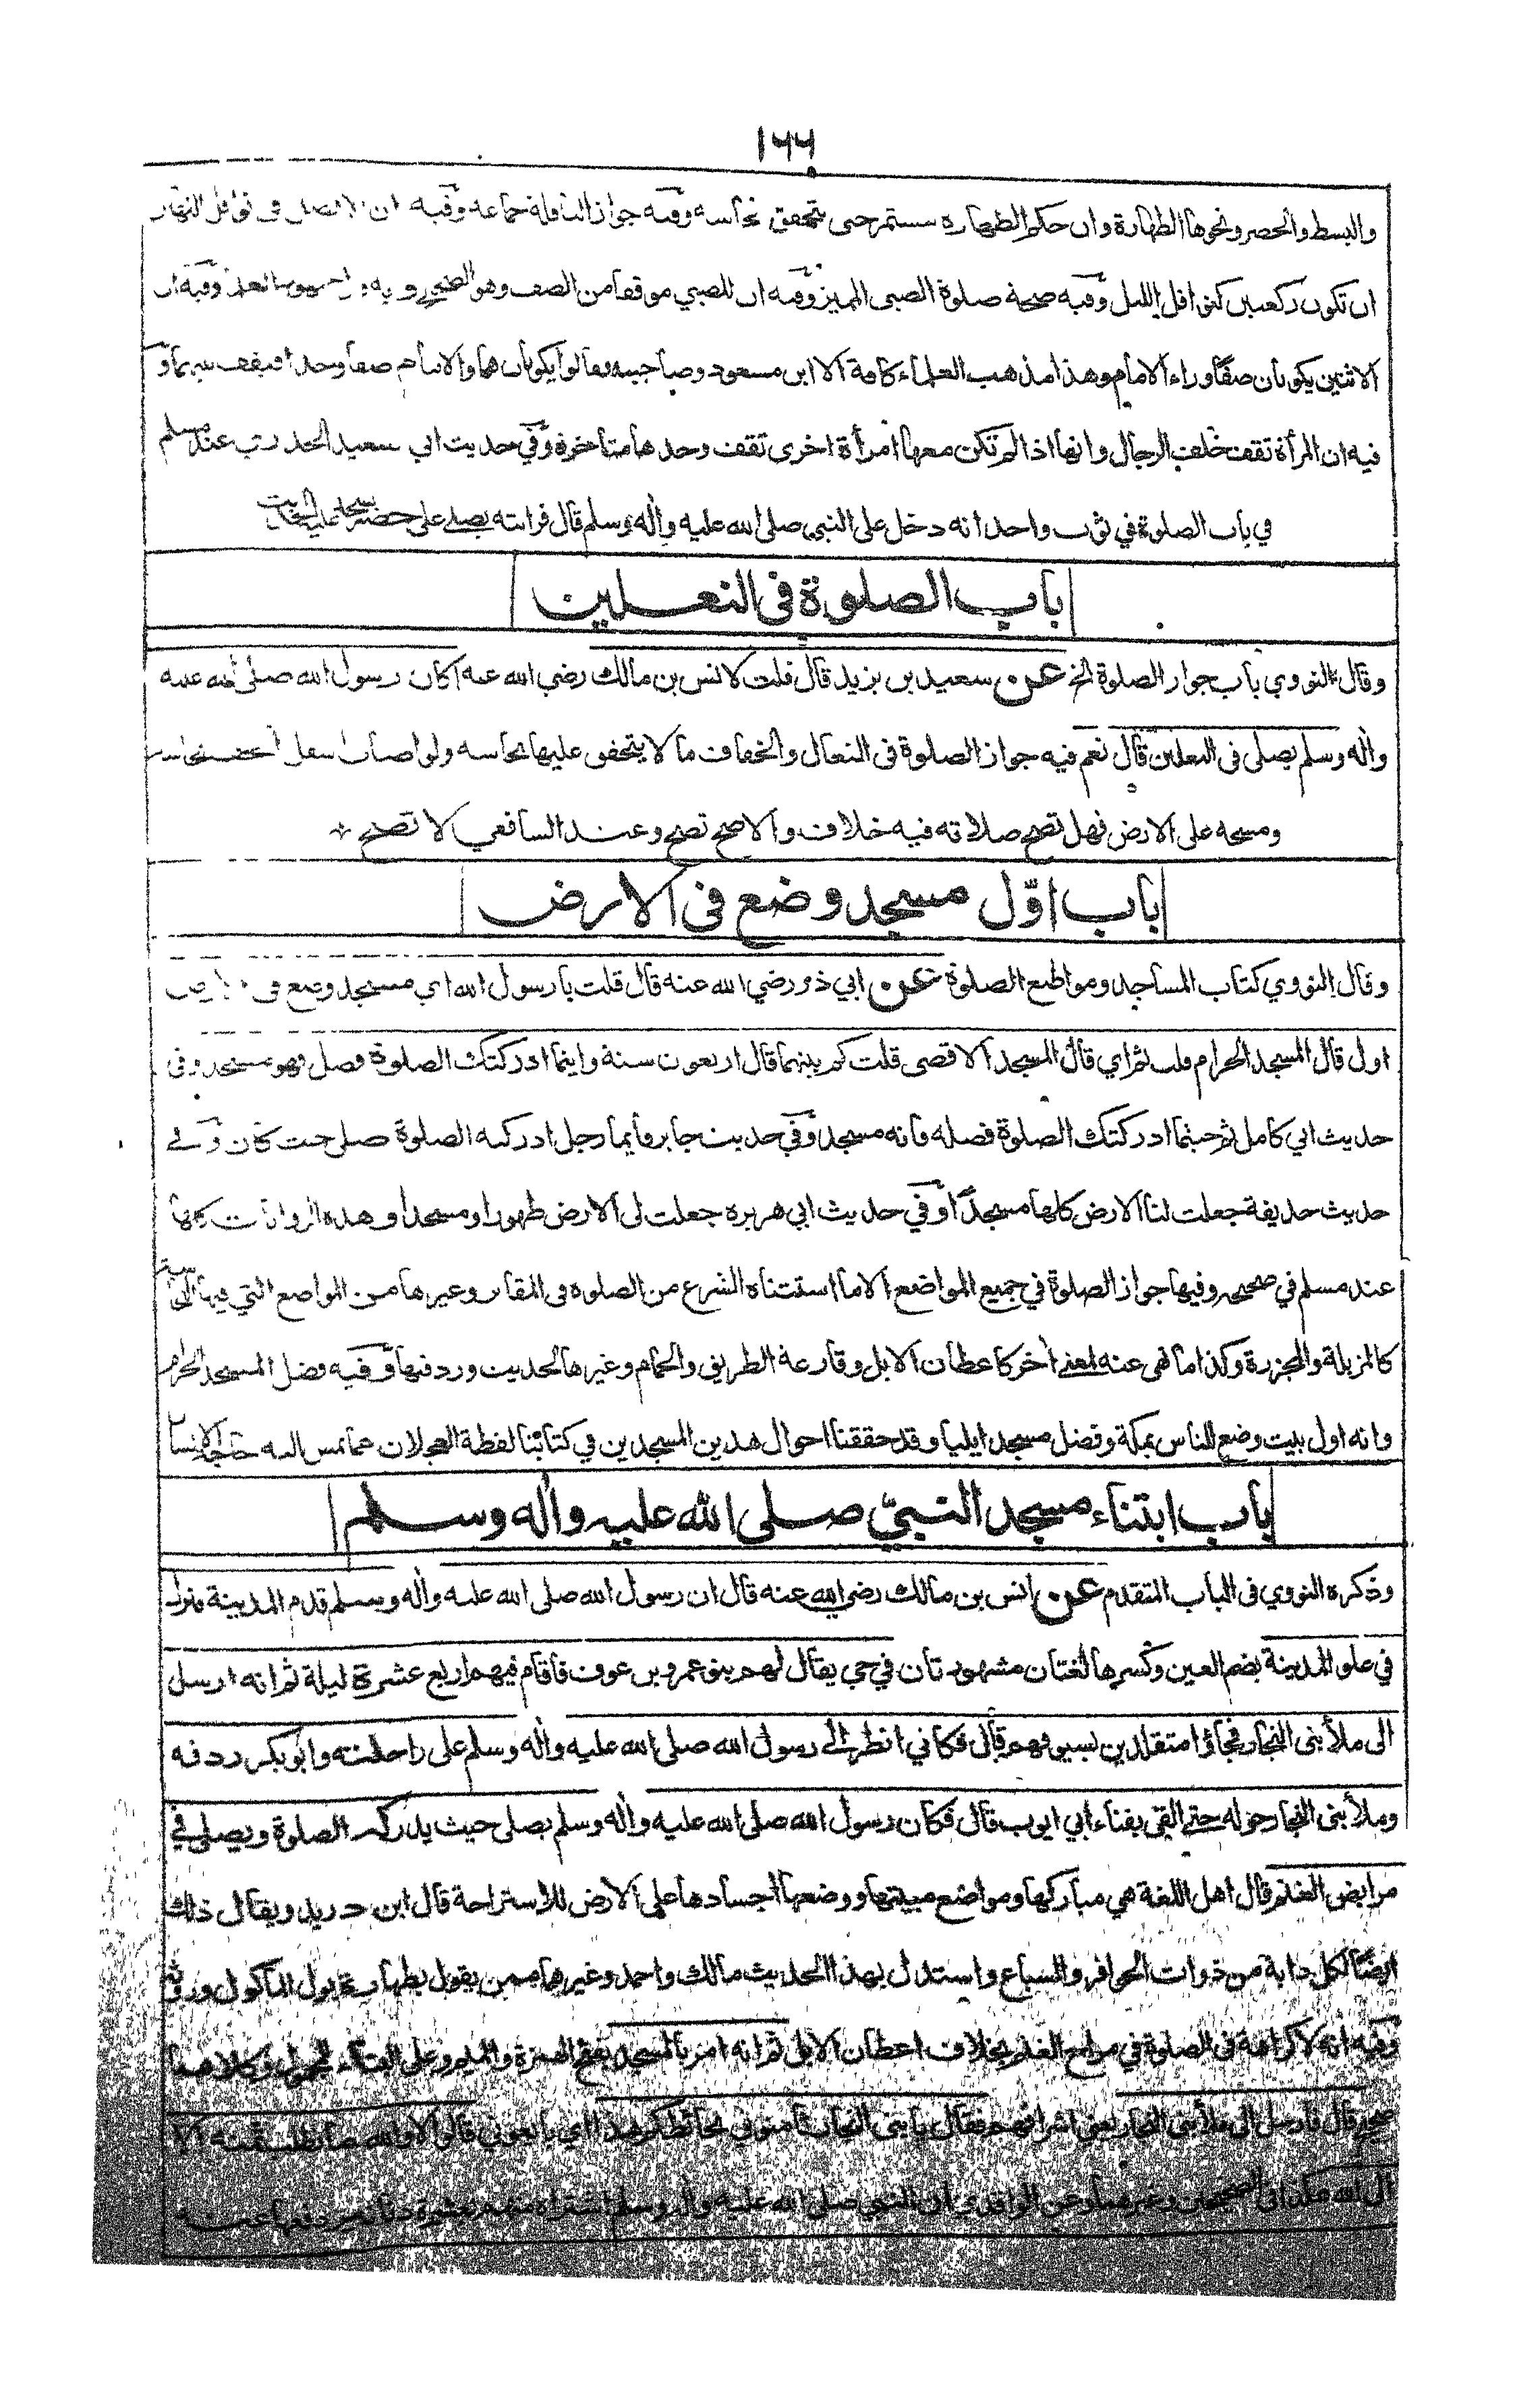 ١٦٦
والبسط والحصر ونحوها الطهارة وان حكم الطهارة مستمر حتى يتحقق نجاسه وفيه جواز النافلة جماعه وفيه ان الافضل فى نوافل النهار
ان تكون ركعتين كنوافل الليل وفيه صحة صلوة الصبى المميز وفيه ان للصبي موقفا من الصف وهو الصحيح وبه العلماء وفيه ان
الاثنين يكونان صفا وراء الامام وهذا مذهب العلماء كافة الا ابن مسعود وصاحبيه فقالوا يكونان هما والامام صفا واحدا فيقف بينهما و
فيه ان المرأة تقف خلف الرجال وانها اذا لم تكن معها امرأة اخرى تقف وحدها متأخرة وفي حديث ابي سعيد الخدري عند مسلم
في باب الصلوة في ثوب واحد انه دخل على النبي صلى الله عليه وأله وسلم قال فرايته يصلے على حصير يسجد عليه الحديث
باب الصلوة فى النعلين
وقال النووي باب جواز الصلوة الخ عن سعيد بن يزيد قال قلت لانس بن مالك رضي الله عنه اكان رسول الله صلى الله عليه
وأله وسلم يصلى فى النعلين قال نعم فيه جواز الصلوة فى النعال والخفاف ما لا يتحقق عليها نجاسه ولو اصاب اسفل الخف نجاسة
ومسحه على الارض فهل تصح صلاته فيه خلاف والاصح تصح وعند الشافعي لا تصح
باب اوّل مسجد وضع فى الارض
وقال النووي كتاب المساجد ومواضع الصلوة عن ابي ذر رضي الله عنه قال قلت يا رسول الله اي مسجد وضع فى الارض
اول قال المسجد الحرام قلت ثم اي قال المسجد الاقصى قلت كم بينهما قال اربعون سنة واينما ادركتك الصلوة فصل فهو مسجد وفى
حديث ابي كامل ثم حيثما ادركتك الصلوة فصله فانه مسجد وفي حديث جابر وايما رجل ادركته الصلوة صلى حيث كان وفے
حديث حذيفة جعلت لنا الارض كلها مسجدا وفي حديث ابي هريرة جعلت لى الارض طهورا ومسجدا وهذه الروايات كلها
عند مسلم في صحيحه وفيها جواز الصلوة في جميع المواضع الا ما استثناه الشرع من الصلوة فى المقابر وغيرها من المواضع التي فيها النجاسة
كالمزبلة والمجزرة وكذا ما نهى عنه لمعنى أخر كاعطان الابل وقارعة الطريق والحمام وغيرها لحديث ورد فيها وفيه فضل المسجد الحرام
وانه اول بيت وضع للناس بمكة وفضل مسجد ايليا وقد حققنا احوال هذين المسجدين في كتابنا لقطة العجلان مما تمس اليه حاجة الانسان
باب ابتناء مسجد النبيّ صلى الله عليه وأله وسلم
وذكره النووي فى الباب المتقدم عن انس بن مالك رضي الله عنه قال ان رسول الله صلى الله عليه وأله وسلم قدم المدينة فنزل
في علو المدينة بضم العين وكسرها لغتان مشهورتان في حي يقال لهم بنو عمرو بن عوف فاقام فيهم اربع عشرة ليلة ثم انه ارسل
الى ملأ بنى النجار فجاؤا متقلدين بسيوفهم قال فكاني انظر الى رسول الله صلى الله عليه وأله وسلم على راحلته وابوبكر ردفه
وملأ بنى النجار حوله حتى القى بفناء ابي ايوب قال فكان رسول الله صلى الله عليه وأله وسلم يصلى حيث يدركه الصلوة ويصلى في
مرابض الغنم قال اهل اللغة هي مباركها ومواضع مبيتها ووضعها اجسادها على الارض للاستراحة قال ابن دريد ويقال ذلك
ايضا لكل دابة من ذوات الحوافر والسباع واستدل بهذا الحديث مالك واحمد وغيرهما ممن يقول بطهارة بول المأكول وروثه
وفيه انه لا كراهة فى الصلوة في مراح الغنم بخلاف اعطان الابل ثم انه امر بالمسجد بفتح الهمزة والميم وعلى البناء للمجهول وكلاهما
صحيح قال فارسل الى ملأ بنى النجار يعني اشرافهم فقال يا بنى النجار ثامنوني بحائطكم هذا اي بايعوني قالوا لا والله ما نطلب ثمنه الا
الى الله هكذا فى الصحيحين وغيرهما وعن الواقدي ان النبي صلى الله عليه وأله وسلم اشتراه منهم بعشرة دنانير دفعها عنه